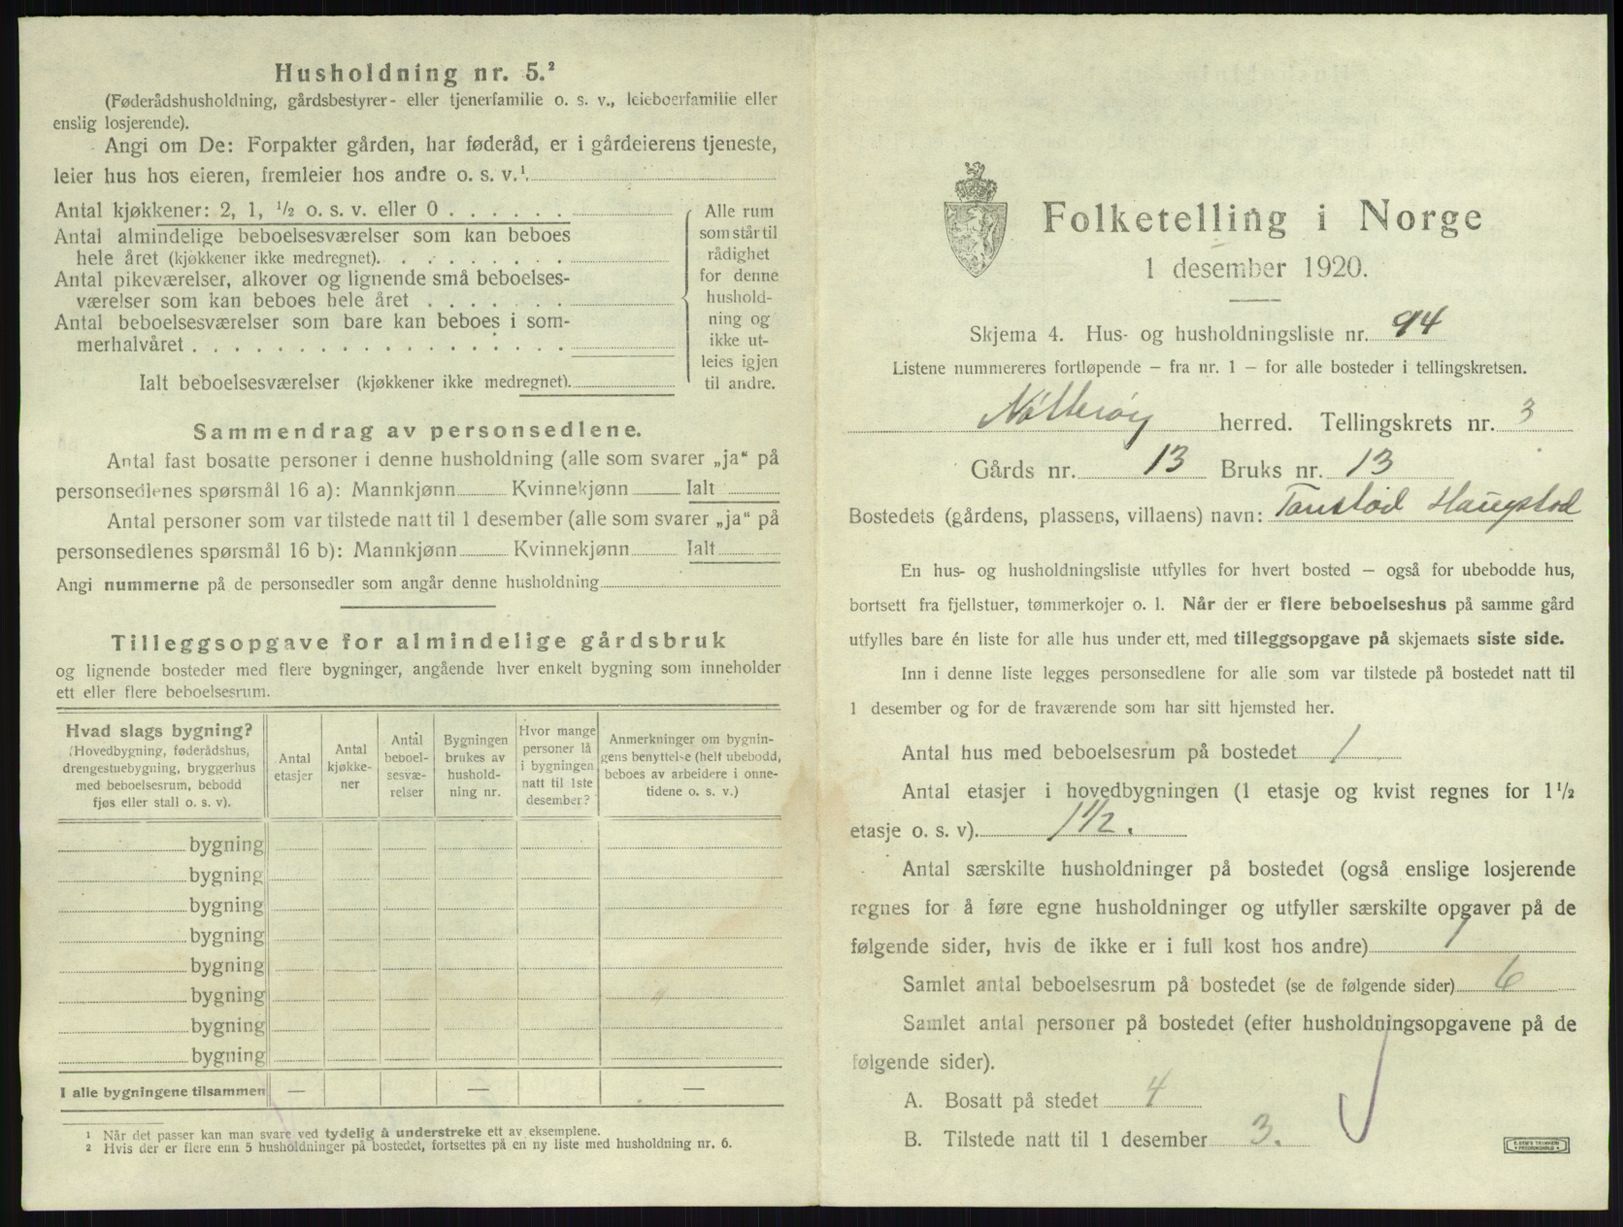 Husholdning nr. 5.²
(Føderådshusholdning, gårdsbestyrer- eller tjenerfamilie o. s. v., leieboerfamilie eller
enslig losjerende).
Angi om De: Forpakter gården, har føderåd, er i gårdeierens tjeneste,
leier hus hos eieren, fremleier hos andre o. s. v.¹.
Antal kjøkkener: 2, 1, ½ o. s. v. eller 0 . . . . . .
Antal almindelige beboelsesværelser som kan beboes
hele året (kjøkkener ikke medregnet). . . . . . . . .
Antal pikeværelser, alkover og lignende små beboelses-
værelser som kan beboes hele året . . . . . . .
Antal beboelsesværelser som bare kan beboes i som-
merhalvåret . . . . . . . . . . . . . . . . . .
Ialt beboelsesværelser (kjøkkener ikke medregnet).
Alle rum
som står til
rådighet
for denne
hushold-
ning og
ikke ut-
leies igjen
til andre.
Sammendrag av personsedlene.
Antal fast bosatte personer i denne husholdning (alle som svarer „ja“ på
personsedlenes spørsmål 16 a): Mannkjønn Kvinnekjønn Ialt
Antal personer som var tilstede natt til 1 desember (alle som svarer „ja“ på
personsedlenes spørsmål 16 b): Mannkjønn Kvinnekjønn Ialt
Angi nummerne på de personsedler som angår denne husholdning
Tilleggsopgave for almindelige gårdsbruk
og lignende bosteder med flere bygninger, angående hver enkelt bygning som inneholder
ett eller flere beboelsesrum.
Hvad slags bygning?
(Hovedbygning, føderådshus,
drengestuebygning, bryggerhus
med beboelsesrum, bebodd
fjøs eller stall o. s. v).
Antal
etasjer
Antal
kjøkke-
ner
Antal
beboel-
sesvæ-
relser
Bygningen
brukes av
hushold-
ning nr.
Hvor mange
personer lå
i bygningen
natt til 1ste
desember?
Anmerkninger om bygnin-
gens benyttelse (helt ubebodd,
beboes av arbeidere i onne-
tidene o. s. v.)
bygning
bygning
bygning
bygning
bygning
bygning
bygning
bygning
I alle bygningene tilsammen — — —
¹ Når det passer kan man svare ved tydelig å understreke ett av eksemplene.
² Hvis der er flere enn 5 husholdninger på bostedet, fortsettes på en ny liste med husholdning nr. 6.
Folketelling i Norge
1 desember 1920.
Skjema 4. Hus- og husholdningsliste nr. 94
Listene nummereres fortløpende – fra nr. 1 – for alle bosteder i tellingskretsen.
Nøtterøy herred. Tellingskrets nr. 3
Gårds nr. 13 Bruks nr. 13
Bostedets (gårdens, plassens, villaens) navn: Tanstød Haugstod
En hus- og husholdningsliste utfylles for hvert bosted – også for ubebodde hus,
bortsett fra fjellstuer, tømmerkojer o. l. Når der er flere beboelseshus på samme gård
utfylles bare én liste for alle hus under ett, med tilleggsopgave på skjemaets siste side.
Inn i denne liste legges personsedlene for alle som var tilstede på bostedet natt til
1 desember og for de fraværende som har sitt hjemsted her.
Antal hus med beboelsesrum på bostedet 1
Antal etasjer i hovedbygningen (1 etasje og kvist regnes for 1½
etasje o. s. v). 1½.
Antal særskilte husholdninger på bostedet (også enslige losjerende
regnes for å føre egne husholdninger og utfyller særskilte opgaver på de
følgende sider, hvis de ikke er i full kost hos andre) 1
Samlet antal beboelsesrum på bostedet (se de følgende sider) 6
Samlet antal personer på bostedet (efter husholdningsopgavene på de
følgende sider).
A. Bosatt på stedet 4
B. Tilstede natt til 1 desember 3.